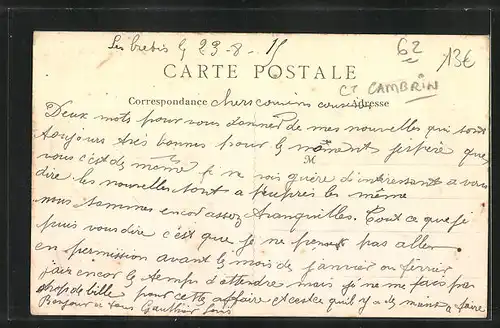 Les brebis le 23-8-15
62
13€
CARTE POSTALE
CT CAMBRIN
Correspondance chers cousins cousine Adresse
Deux mots pour vous donner de mes nouvelles qui sont
toujours très bonnes pour le moment jespère que
M
vous c'est de même je ne vois guère d'interessant a vous
dire les nouvelles sont a peuprès les même
nous sommes encor assez tranquilles. Tout ce que je
puis vous dire c'est que je ne pense pas aller
en permission avant le mois de janvier ou fevrier
jais encor le temps d'attendre mais je ne me fais pas
trop de bille pour cette affaire et cest ce qu'il y a de mieux a faire
Bonjour a tous Gauthier